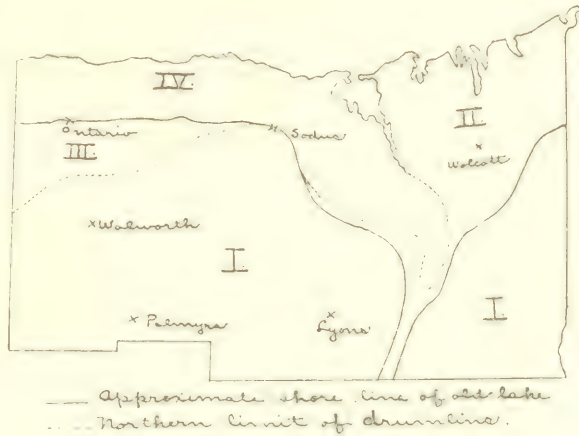 IV.
II.
Ontario
Sodus
III.
Wolcott
Walworth
I.
I.
Palmyra
Lyons
Approximate shore line of old lake
Northern limit of drumlins.